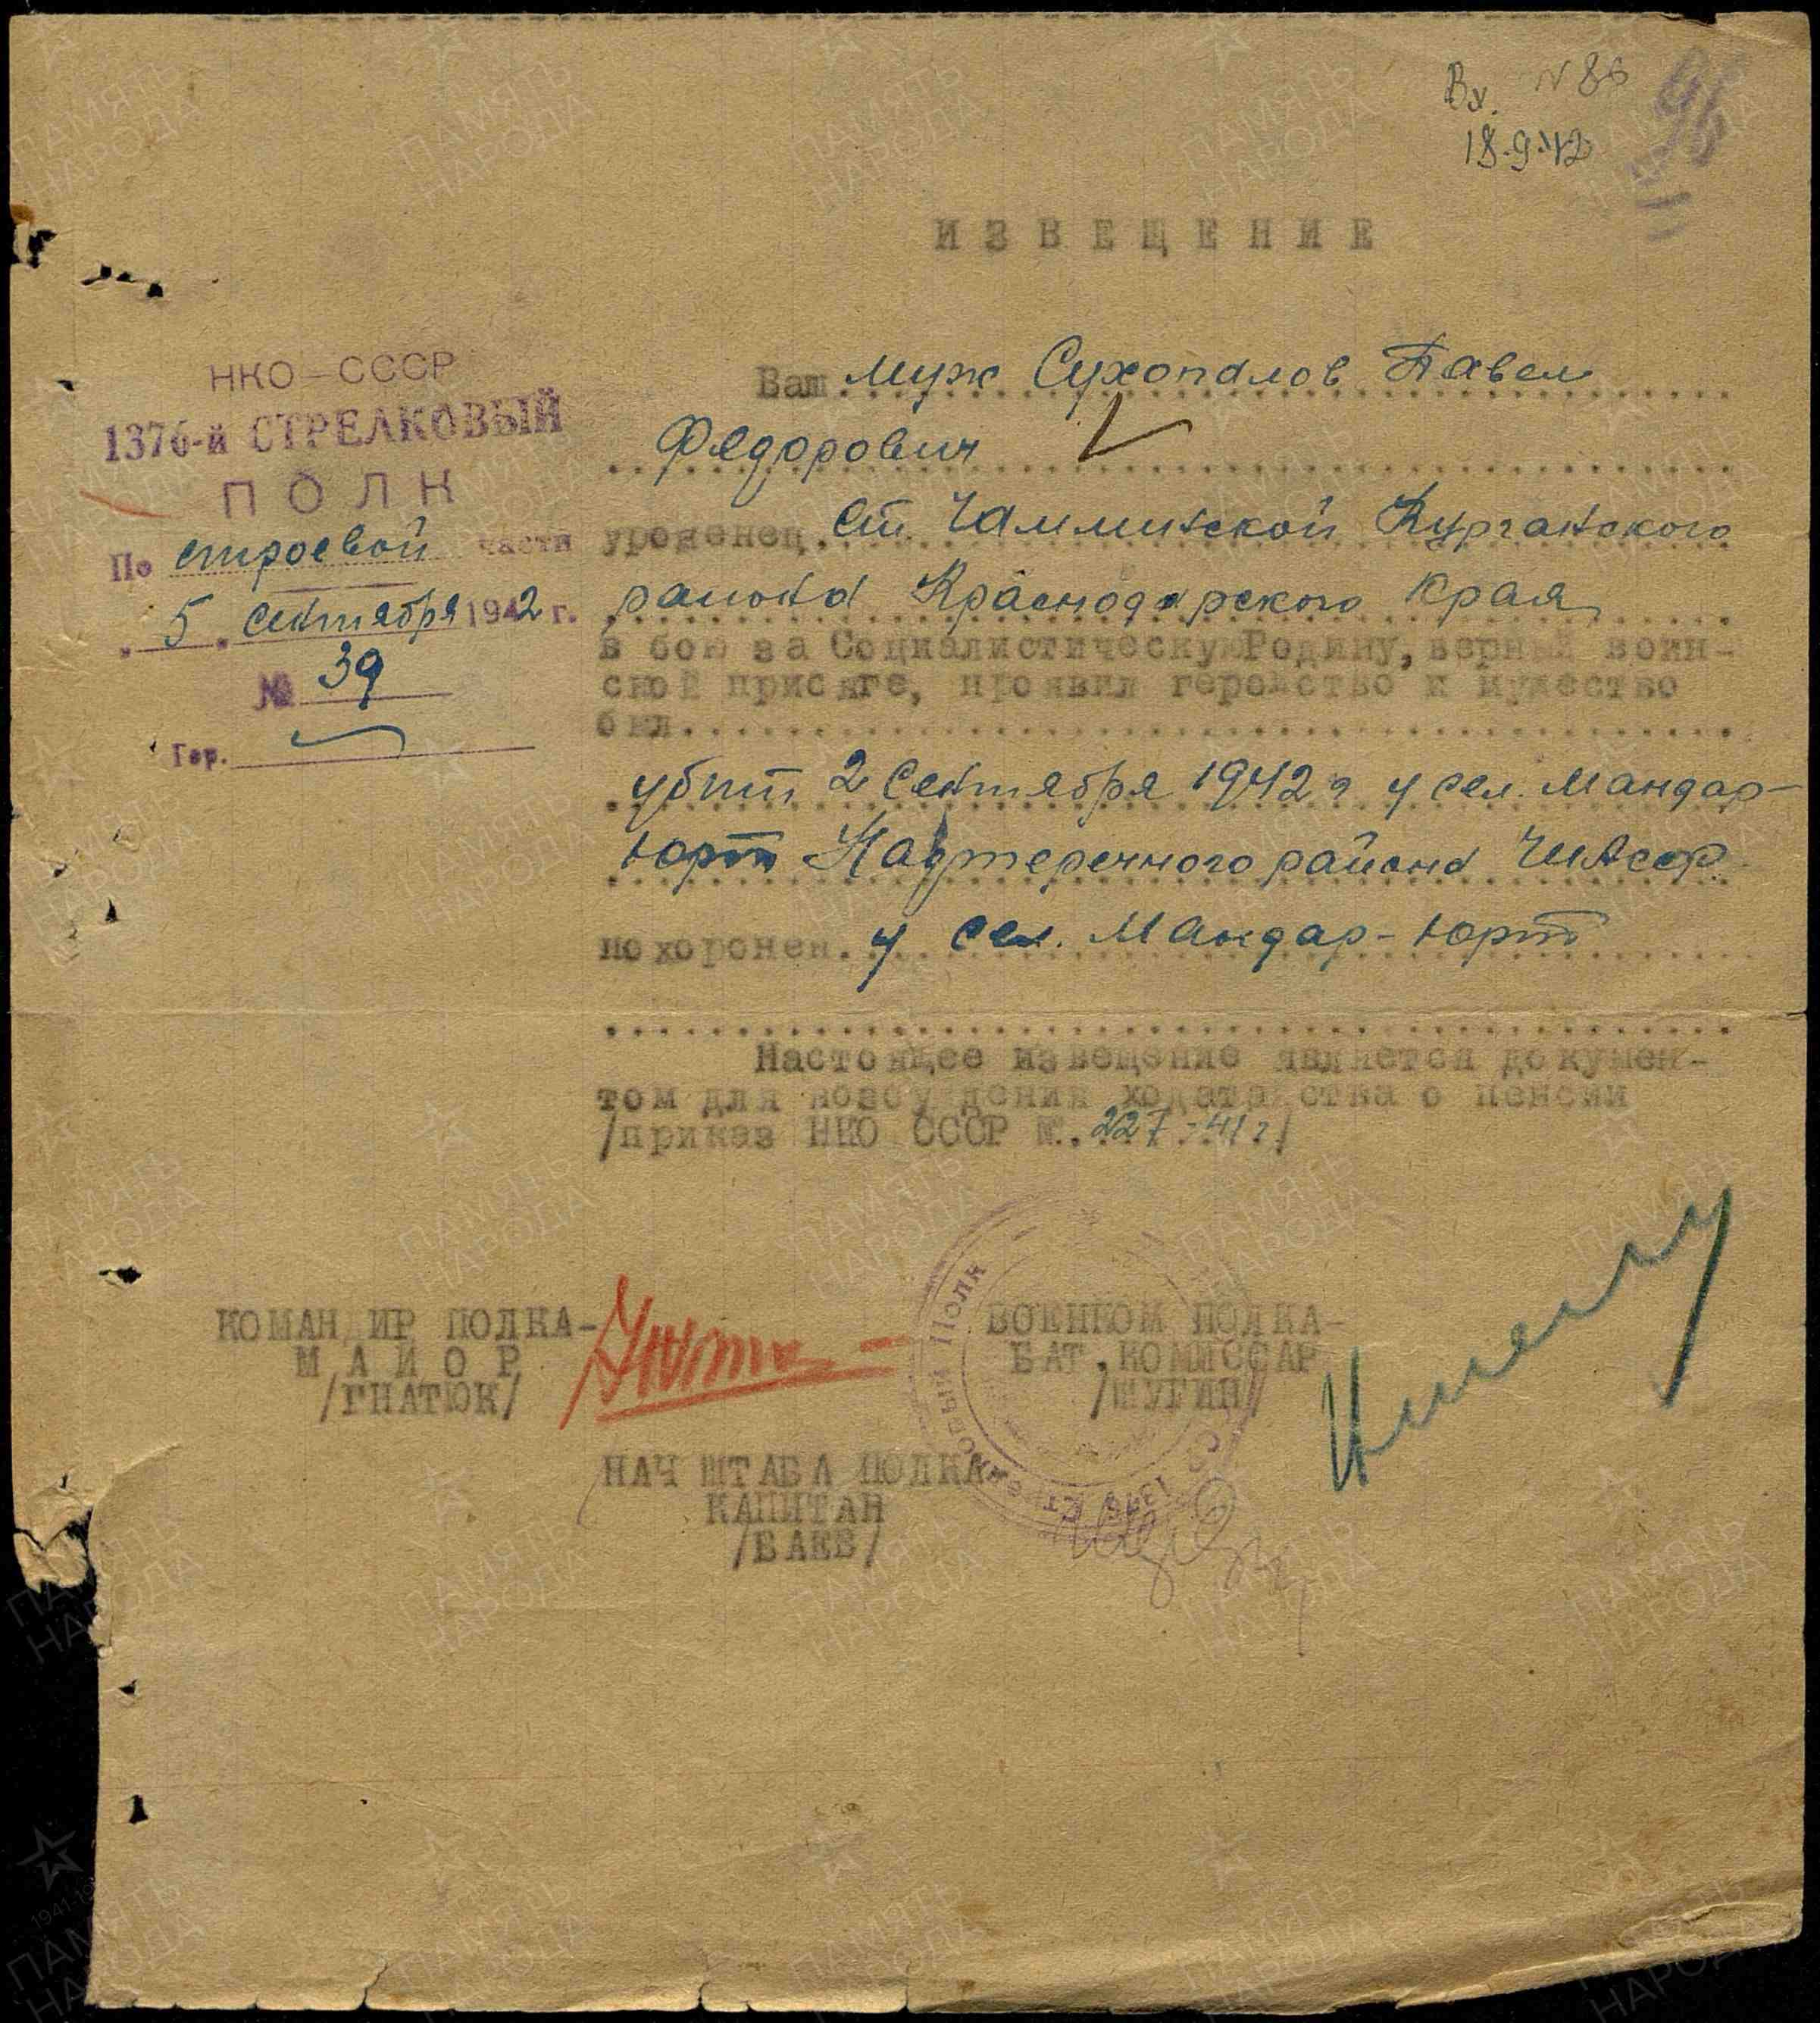 Вх. N 86
96
18.9.42
ИЗВЕЩЕНИЕ
НКО – СССР
1376-й СТРЕЛКОВЫЙ
ПОЛК
По строевой части
"5" сентября 1942 г.
№ 39
Гор.
Ваш муж Сухопалов Павел
Федорович
уроженец Ст. Чаммитской Курганского
района Краснодарского Края
в бою за Социалистическую Родину, верный воин-
ской присяге, проявив геройство и мужество
был
убит 2 Сентября 1942 г у сел. Мандар-
Юрт Надтеречного района ЧИАССР
похоронен. у сел. Мандар-Юрт
Настоящее извещение является докумен-
том для возбуждения ходатайства о пенсии
/приказ НКО СССР №. 227-41 г/
КОМАНДИР ПОЛКА-
МАЙОР
/ГНАТЮК/
ВОЕНКОМ ПОЛКА-
БАТ.КОМИССАР
/ШУГИН/
НАЧ ШТАБА ПОЛКА-
КАПИТАН
/БАЕВ/
1376 Стрелковый Полк
ПАМЯТЬ
НАРОДА